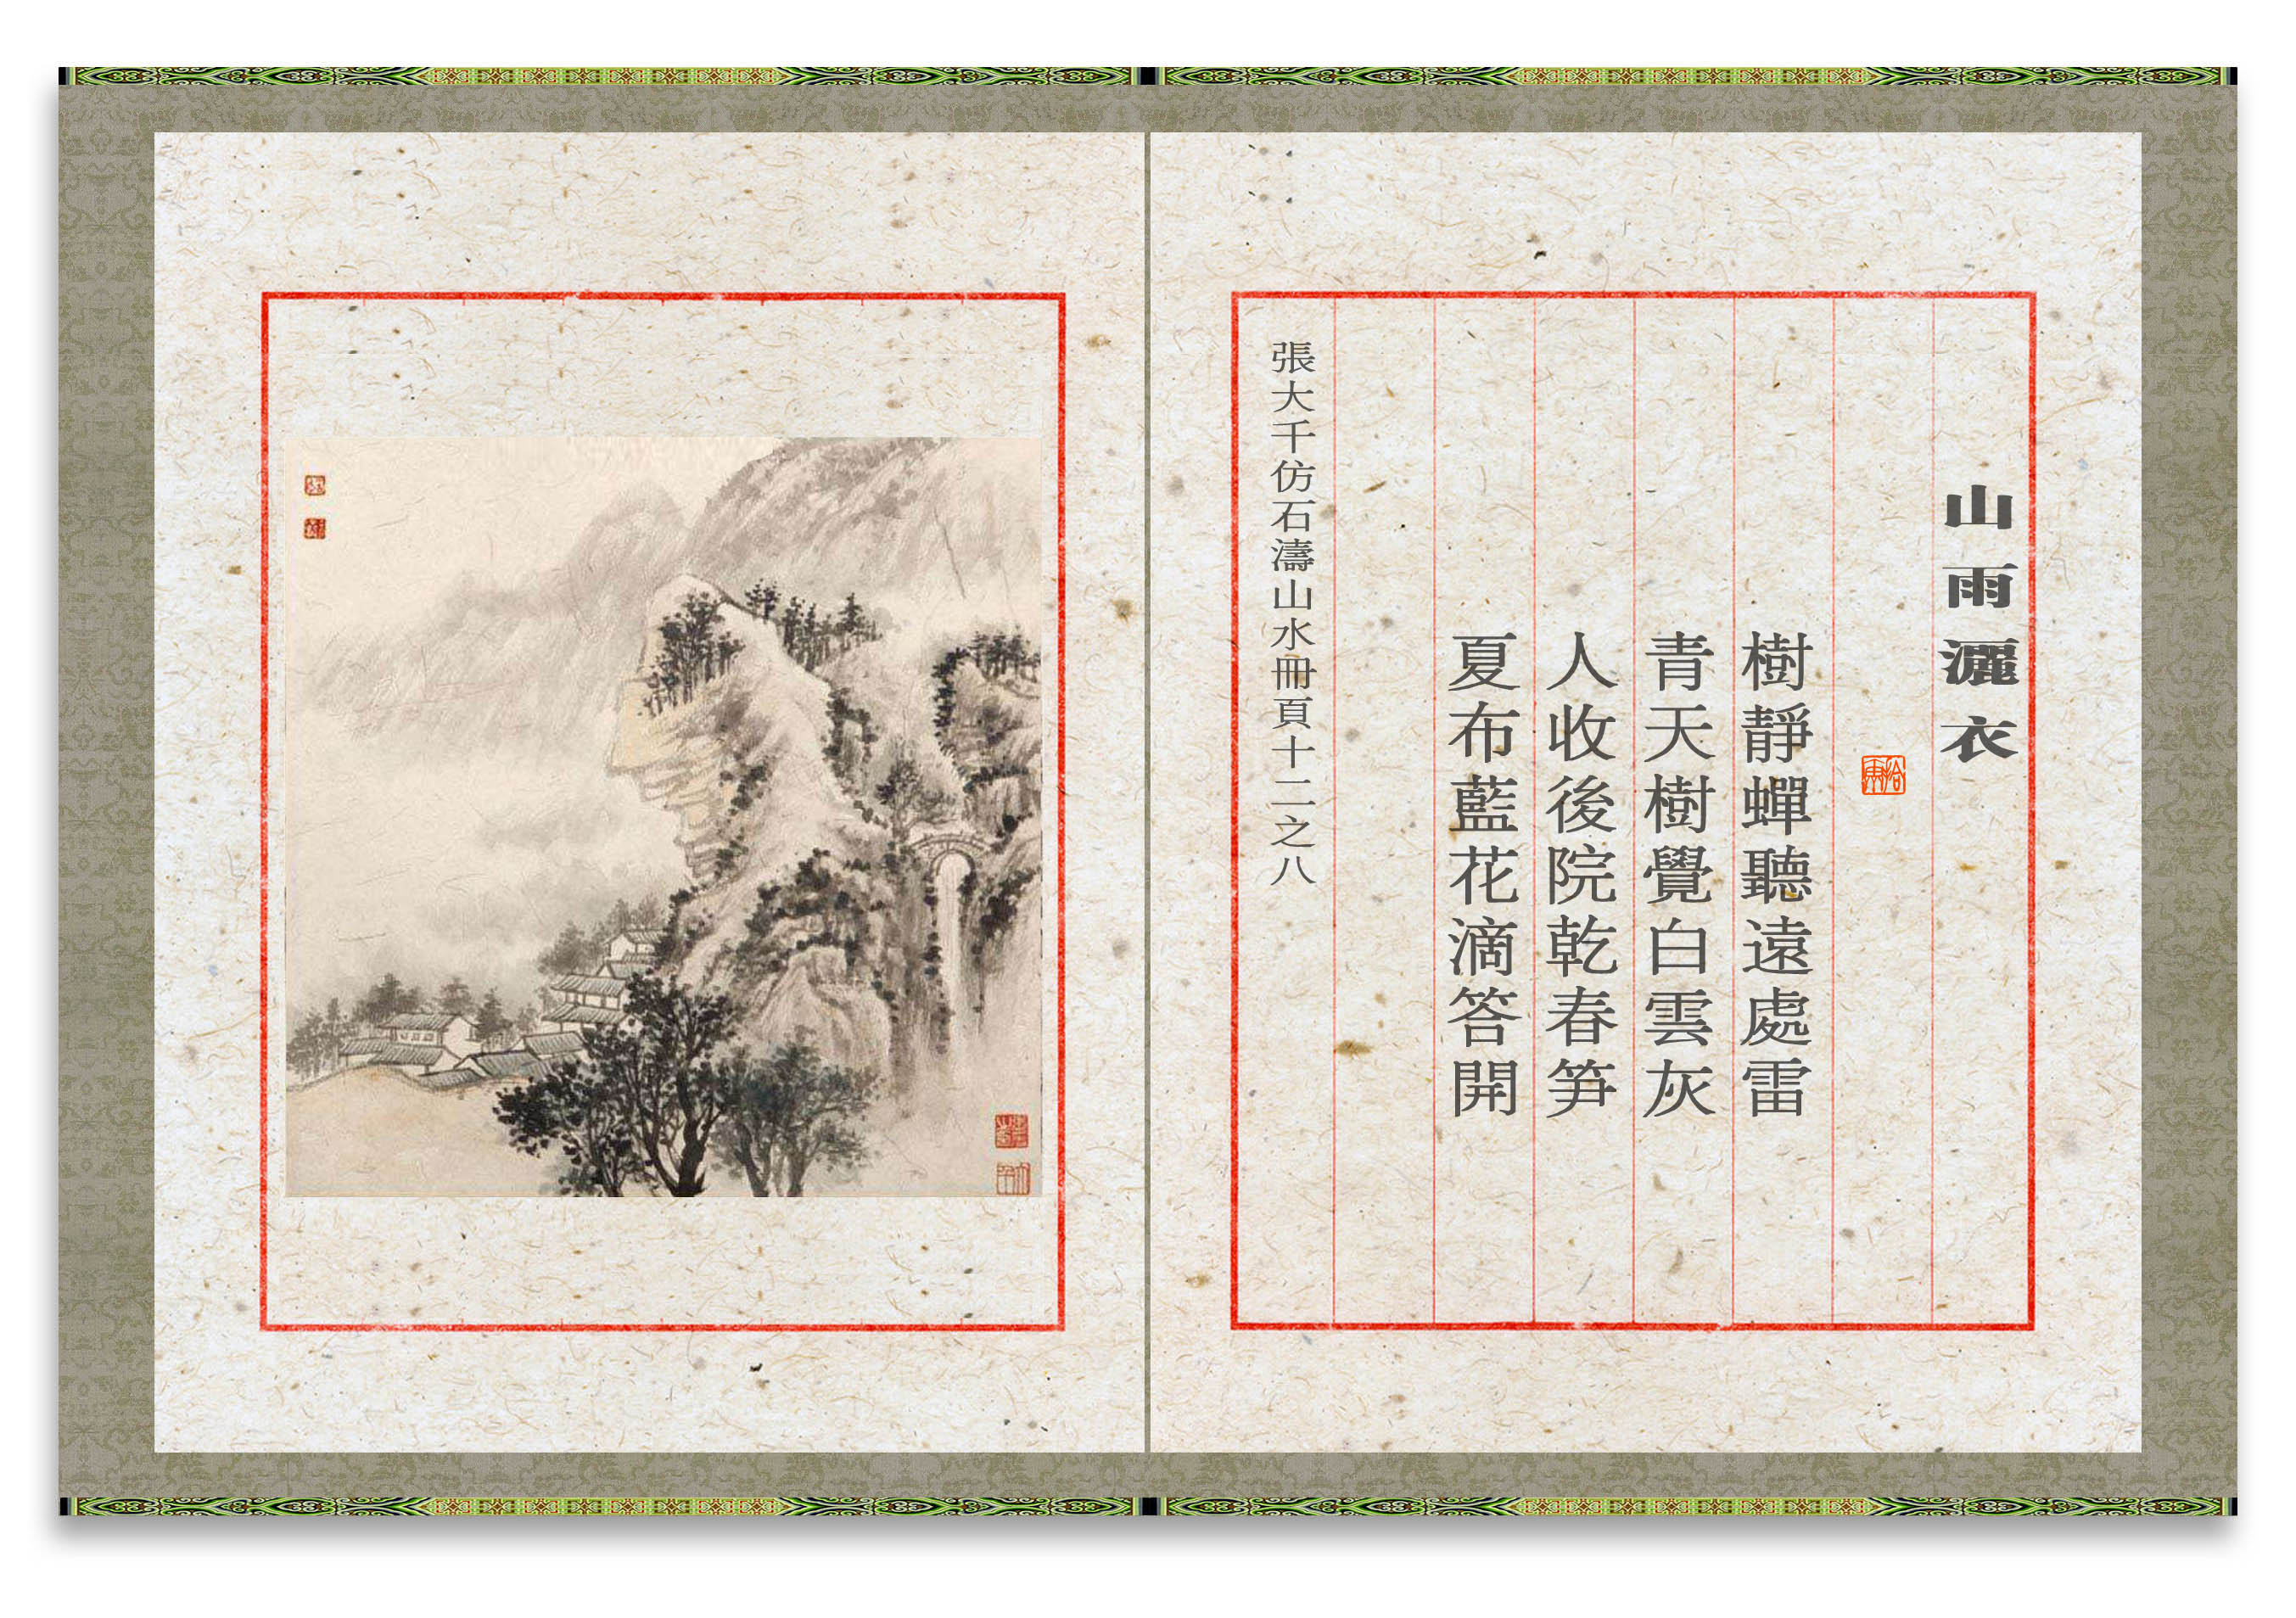 山雨灑衣
樹靜蟬聽遠處雷
青天樹覺白雲灰
人收後院乾春笋
夏布藍花滴答開
張大千仿石濤山水冊頁十二之八